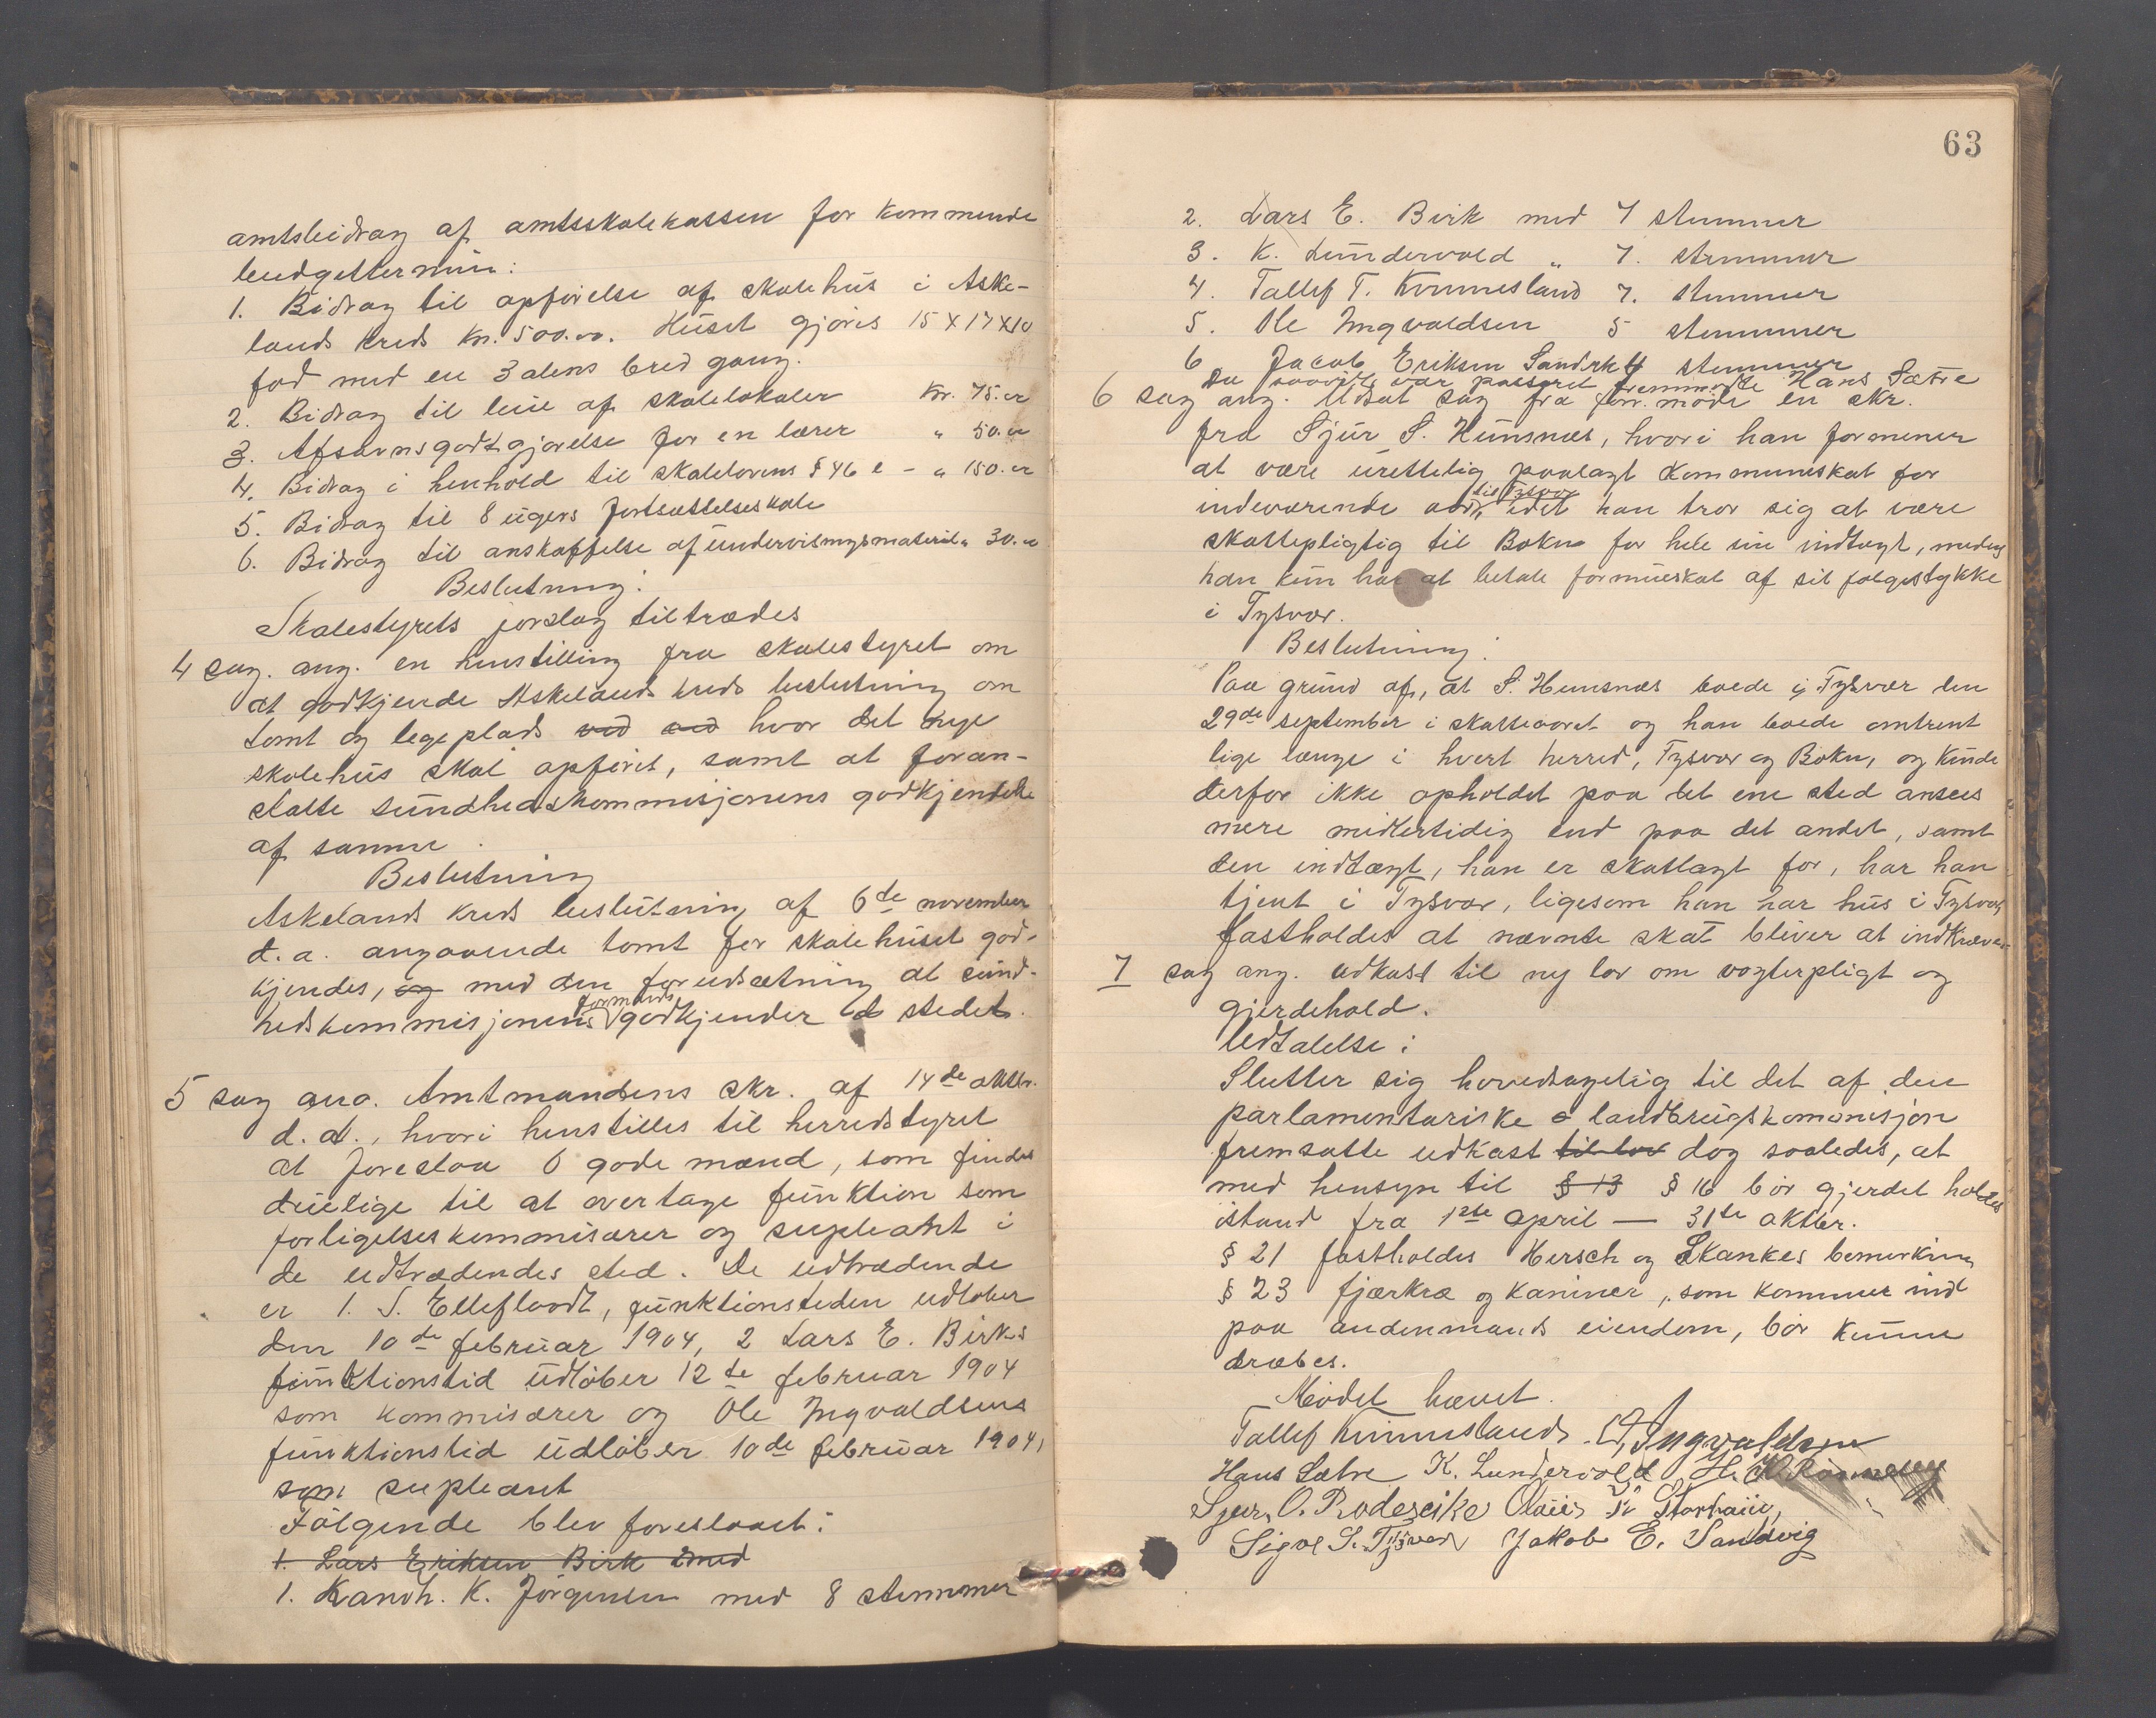 amtsbidrag af amtsskolekassen for kommende
budgettermin:
1. Bidrag til opførelse af skolehus i Aske-
lands kreds Kr. 500.00. Huset gjøres 15 X 17 X 10
fod med en 3 alens bred gang.
2. Bidrag til leie af skolelokaler Kr. 75.00
3. Afsavnsgodtgjørelse for en lærer " 50.00
4. Bidrag i henhold til skolelovens § 46 e - " 150.00
5. Bidrag til 8 ugers fortsættelseskole
6. Bidrag til anskaffelse af undervisningsmateriel " 30.00
Beslutning:
Skolestyrets forslag tiltrædes
4 sag. ang. en henstilling fra skolestyret om
at godkjende Askelands kreds beslutning om
tomt og legeplads ved ved hvor det nye
skolehus skal opføres, samt at foran-
stalte sundhedskommisjonens godkjendelse
af samme.
Beslutning
Askelands kreds beslutning af 6de november
d. a. angaaende tomt for skolehuset god-
kjendes, og med den forudsætning at sund-
formand
hedskommisjonens godkjender stedet.
5 sag ang. Amtmandens skr. af 14de oktbr.
d. a., hvori henstilles til herredstyret
at foreslaa 6 gode mænd, som findes
duelige til at overtage funktion som
forligelseskommisærer og supleant i
de udtrædendes sted. De udtrædende
er 1. S. Elleflaadt, funktionstiden udløber
den 10de februar 1904, 2 Lars E. Birks
funktionstid udløber 12te februar 1904
som kommisærer og Ole Ingvaldsens
funktionstid udløber 10de februar 1904,
som supleant
Følgende blev foreslaaet:
1. Lars Eriksen Birk med
1. Kandh. K. Jørgensen med 8 stemmer
63
2. Lars E. Birk med 7 stemmer
3. K. Lundervold " 7. stemmer
4. Tallef T. Kvinnesland 7. stemmer
5. Ole Ingvaldsen 5 stemmer
6 Jacob Eriksen Sandvik 4 stemmer
Da saavidt var passeret fremmødte Hans Sætre
6 sag ang. Udsat sag fra forr. møde en skr.
fra Sjur S. Hunsnes, hvori han formener
at være urettelig paalagt kommuneskat for
til Tysvær
indeværende aar, idet han tror sig at være
skattepligtig til Bokn for hele sin indtægt, medens
han kun har at betale formueskat af sit folgestykke
i Tysvær.
Beslutning:
Paa grund af, at S. Hunsnæs boede i Tysvær den
29de september i skatteaaret og han boede omtrent
lige længe i hvert herred, Tysvær og Bokn, og kunde
derfor ikke opholdet paa det ene sted ansees
mere midlertidig end paa det andet, samt
den indtægt, han er skatlagt for, har han
tjent i Tysvær, ligesom han har hus i Tysvær,
fastholdes at nævnte skat bliver at indkræves.
7 sag ang. udkast til ny lov om vogterpligt og
gjerdehold.
Udtalelse:
Slutter sig hovedsagelig til det af den
parlamentariske landbrugskommisjon
fremsatte udkast til lov dog saaledes, at
med hensyn til § 13 § 16 bør gjerdet holdes
istand fra 1ste april — 31te oktbr.
§ 21 fastholdes Hersch og Skankes bemerkning
§ 23 fjærkræ og kaniner, som kommer ind
paa andenmands eiendom, bør kunne
dræbes.
Mødet hævet.
Tallef Kvinnesland. O. Ingvaldsen
Hans Sætre K. Lundervold H. H.
Sjur. O. Rodeseike Olaus Storhaug,
Sigve S. Tysvær Jakob E. Sandvig